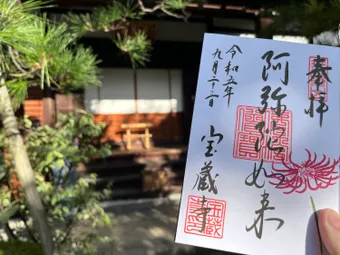 奉拝
阿弥陀如来
宝蔵寺
令和五年
九月二十二日